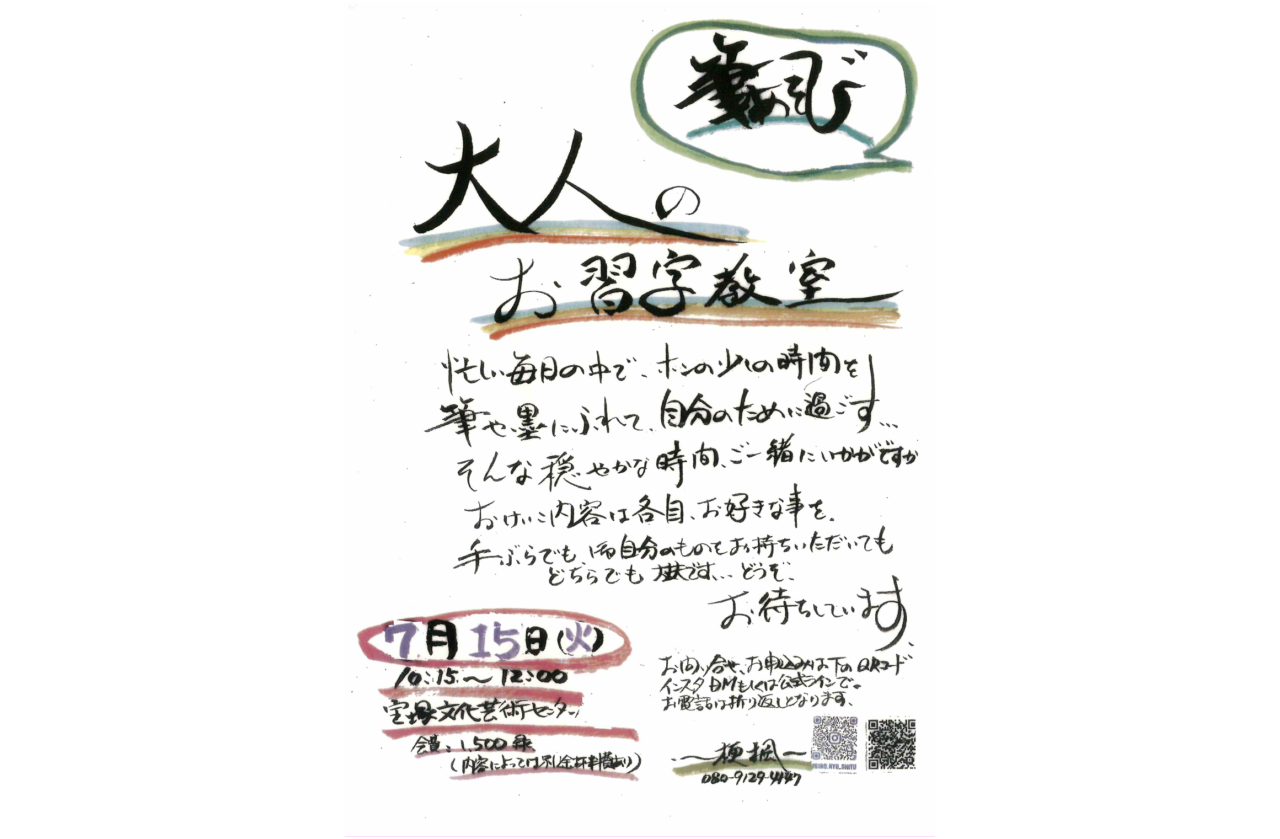 筆あそび
大人の
お習字教室
忙しい毎日の中で、ホンの少しの時間を
筆や墨にふれて、自分のために過ごす…
そんな穏やかな時間、ご一緒にいかがですか
おけいこ内容は各自、お好きな事を。
手ぶらでも、ご自分のものをお持ちいただいても
どちらでも大丈夫です… どうぞ、
お待ちしています、
7月15日(火)
10:15〜12:00
宝塚文化芸術センター
会費:1,500円
(内容によっては別途材料費あり)
お問い合せ、お申込みは下のQRコード
インスタDMもしくは公式ラインで。
お電話は折り返しとなります。
080-9129-4147